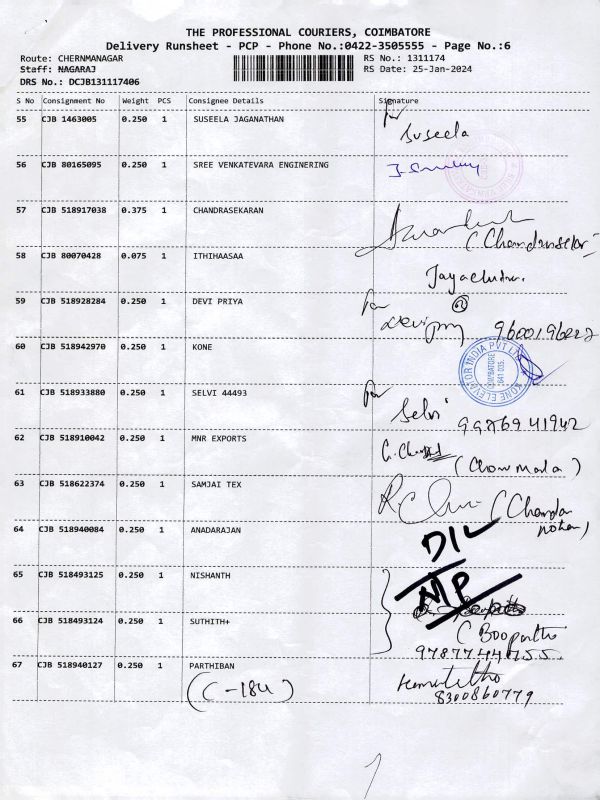 THE PROFESSIONAL COURIERS, COIMBATORE
Delivery Runsheet - PCP - Phone No.:0422-3505555 - Page No.:6
Route: CHERNMANAGAR RS No.: 1311174
Staff: NAGARAJ RS Date: 25-Jan-2024
DRS No.: DCJB131117406
S No Consignment No Weight PCS Consignee Details Signature
55 CJB 1463005 0.250 1 SUSEELA JAGANATHAN for Suseela
56 CJB 80165095 0.250 1 SREE VENKATEVARA ENGINERING
57 CJB 518917038 0.375 1 CHANDRASEKARAN
58 CJB 80070428 0.075 1 ITHIHAASAA
59 CJB 518928284 0.250 1 DEVI PRIYA for
60 CJB 518942970 0.250 1 KONE KONE ELEVATOR INDIA PVT LTD COIMBATORE 641 035.
61 CJB 518933880 0.250 1 SELVI 44493 for Selvi
9976941942
62 CJB 518910042 0.250 1 MNR EXPORTS
63 CJB 518622374 0.250 1 SAMJAI TEX
64 CJB 518940084 0.250 1 ANADARAJAN D/L
65 CJB 518493125 0.250 1 NISHANTH
66 CJB 518493124 0.250 1 SUTHITH+
67 CJB 518940127 0.250 1 PARTHIBAN
(C-184) 8300860779